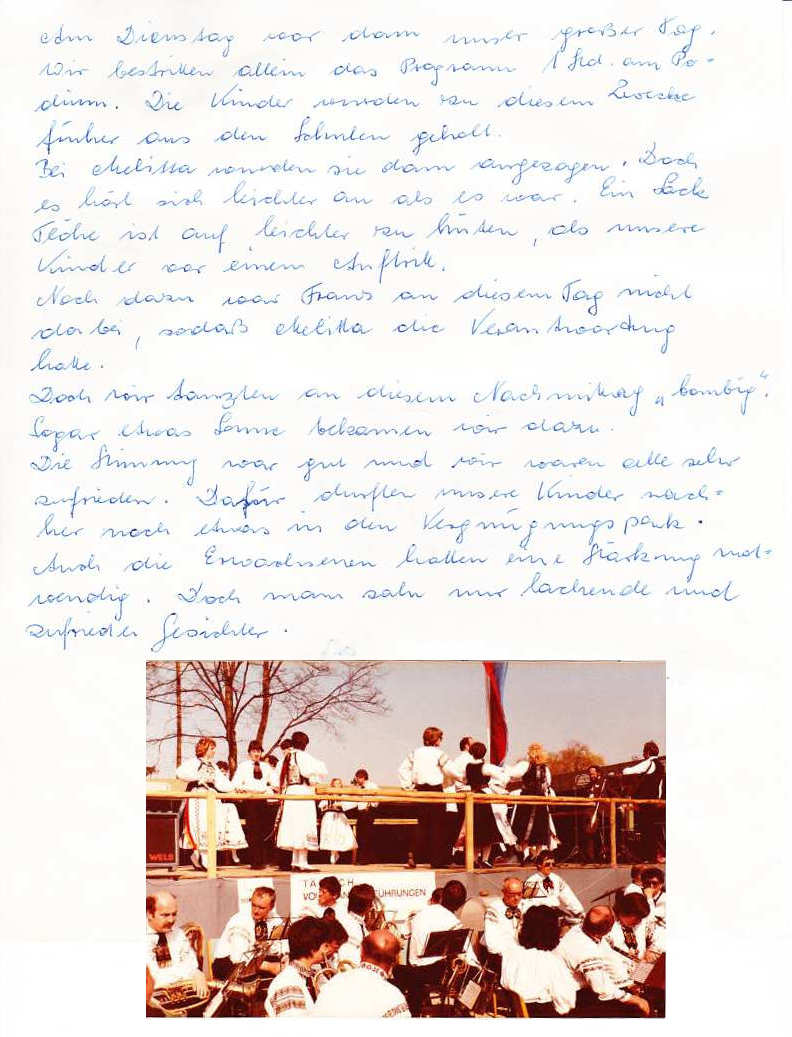 Am Dienstag war dann unser großer Tag.
Wir bestritten allein das Programm 1 Std. am Po-
dium. Die Kinder wurden zu diesem Zwecke
früher aus den Schulen geholt.
Bei Melitta wurden sie dann angezogen. Doch
es hört sich leichter an als es war. Ein Sack
Flöhe ist auf leichter zu hüten, als unsere
Kinder vor einem Auftritt.
Noch dazu war Franz an diesem Tag nicht
dabei, sodaß Melitta die Verantwortung
hatte.
Doch wir tanzten an diesem Nachmittag „bombig".
Sogar etwas Sonne bekamen wir dazu.
Die Stimmung war gut und wir waren alle sehr
zufrieden. Dafür durften unsere Kinder nach=
her noch etwas in den Vergnügungspark.
Auch die Erwachsenen hatten eine Stärkung not=
wendig. Doch man sah nur lachende und
zufriedene Gesichter.
WELS
TÄGLICH
FÜHRUNGEN